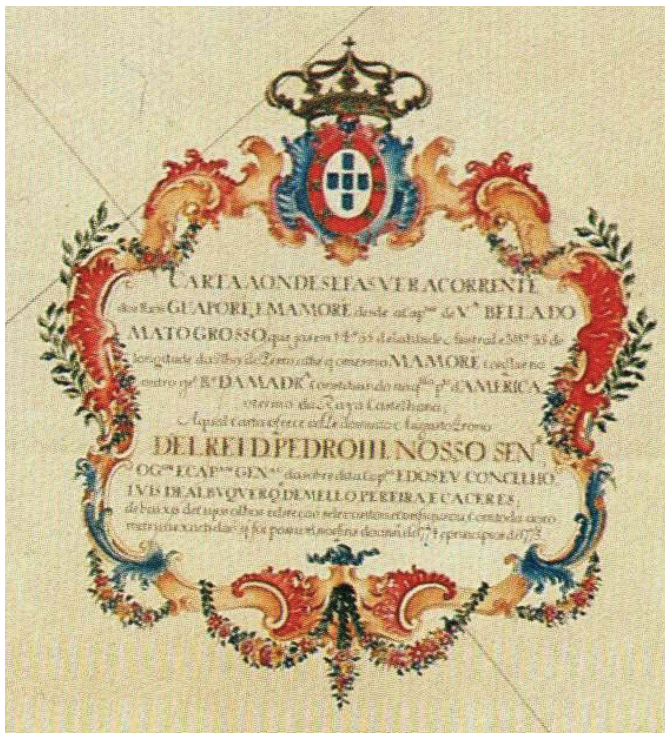 CARTA AONDE SE FAS VER A CORRENTE
dos Rios GUAPORE, E MAMORE desde a Cap.ⁿⁱᵃ de V.ᵃ BELLA DO
MATO GROSSO, que jas em de latitude Austral e de
longitude da Ilha do Ferro athe q̃ o mesmo MAMORE conflue no
outro R.º DA MADR.ᵃ constituindo p.ᵗᵉ d'AMERICA,
o termo da Raya Castelhana;
Aqual Carta oferece Augusto Trono
DEL REI D. PEDRO III. NOSSO SEN.ᴿ
O G.ᵒʳ E CAP.ᵃᵐ GEN.ᵃˡ da sobredita Cap.ⁿⁱᵃ E DO SEV CONCELHO,
LUIS DE ALBVQVERQ̃ DE MELLO PEREIRA E CACERES;
debaixo de cujos olhos esta e com toda a
e principios de 1775.